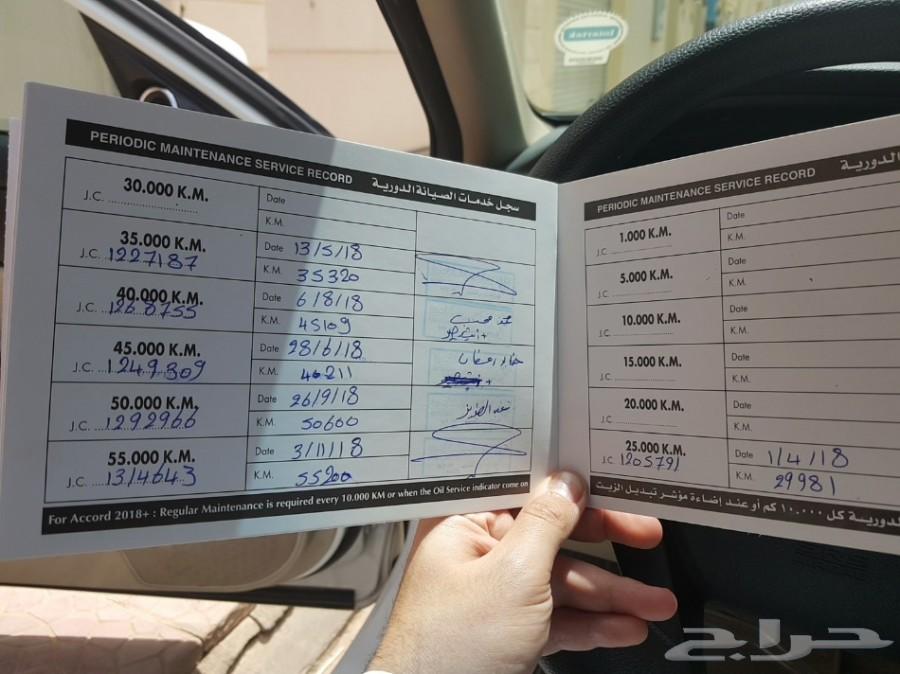 PERIODIC MAINTENANCE SERVICE RECORD سجل خدمات الصيانة الدورية
30.000 K.M.
J.C.
Date
K.M.
35.000 K.M.
J.C. 1227187
Date 13/5/18
K.M. 35320
40.000 K.M.
J.C. 1268755
Date 6/8/18
K.M. 45109
45.000 K.M.
J.C. 1249309
Date 28/6/18
K.M. 46211
50.000 K.M.
J.C. 1292966
Date 26/9/18
K.M. 50600
55.000 K.M.
J.C. 1314643
Date 3/11/18
K.M. 55200
For Accord 2018+ : Regular Maintenance is required every 10.000 KM or when the Oil Service indicator come on
PERIODIC MAINTENANCE SERVICE RECORD الدورية
1.000 K.M.
J.C.
Date
K.M.
5.000 K.M.
J.C.
Date
K.M.
10.000 K.M.
J.C.
Date
K.M.
15.000 K.M.
J.C.
Date
K.M.
20.000 K.M.
J.C.
Date
K.M.
25.000 K.M.
J.C. 1205791
Date 1/4/18
K.M. 29981
الدورية كل ١٠،٠٠٠ كم أو عند إضاءة مؤشر تبديل الزيت
حراج